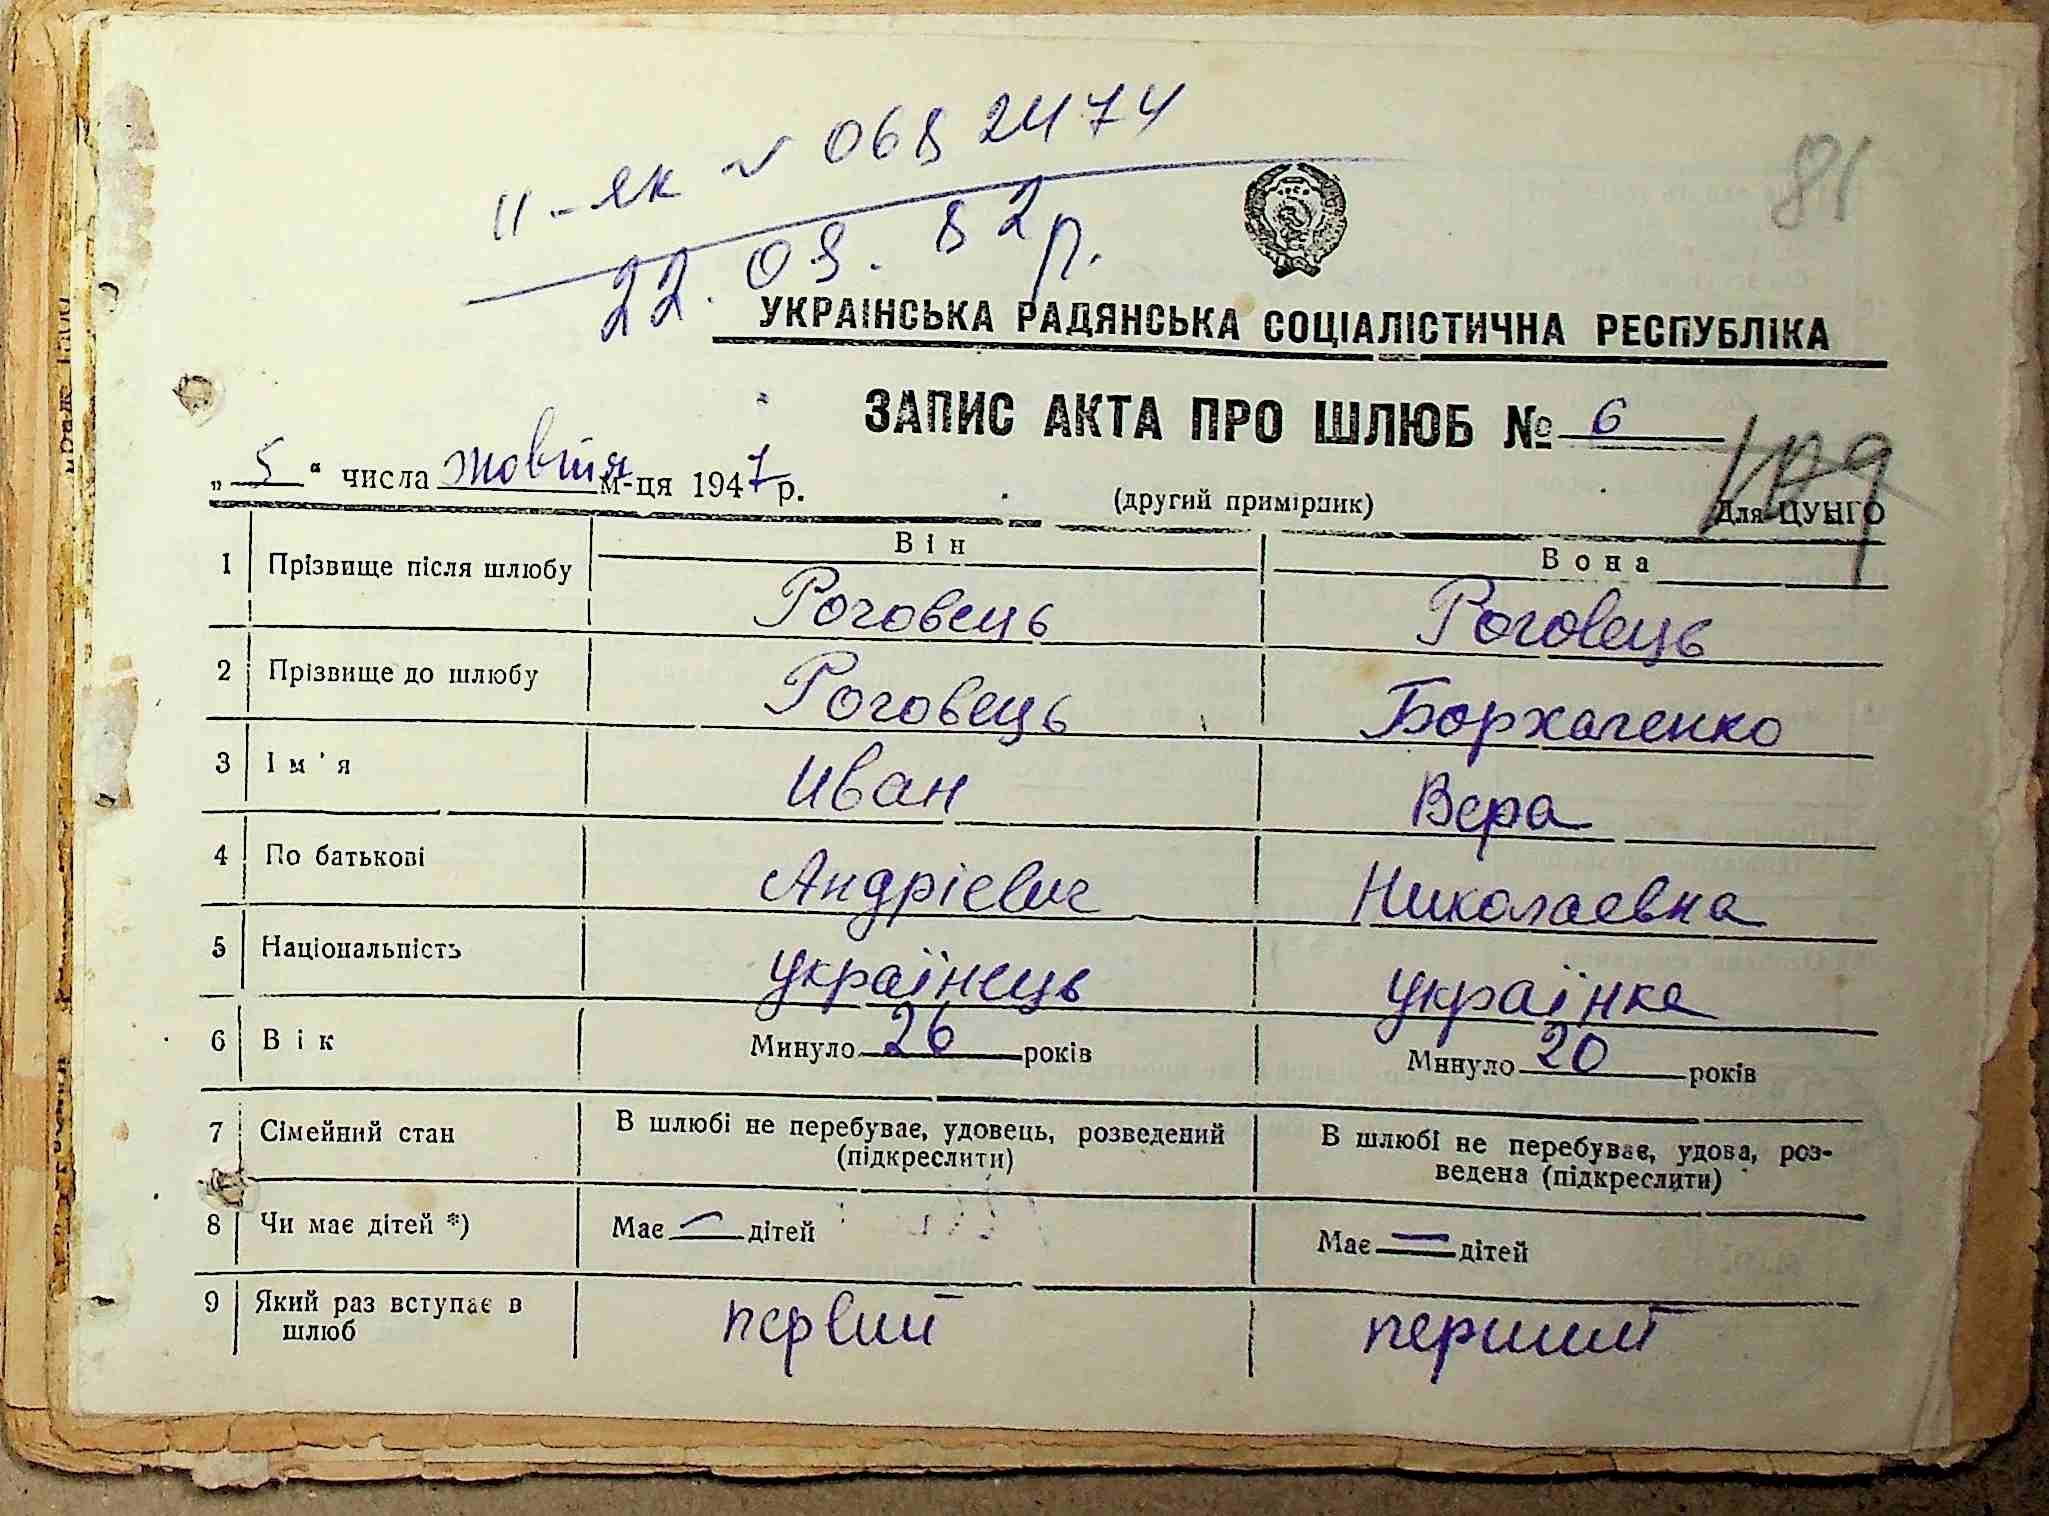 II-ЯК № 068 2474
22. 09. 82 р.
81
УКРАЇНСЬКА РАДЯНСЬКА СОЦІАЛІСТИЧНА РЕСПУБЛІКА
ЗАПИС АКТА ПРО ШЛЮБ № 6
„ 5 “ числа жовтня м-ця 1947 р.
(другий примірник)
Для ЦУНГО
Він Вона
1 Прізвище після шлюбу Роговець Роговець
2 Прізвище до шлюбу Роговець Борхаленко
3 Ім'я Иван Вера
4 По батькові Андрієвич Николаевна
5 Національність українець українка
6 Вік Минуло 26 років Минуло 20 років
7 Сімейний стан В шлюбі не перебуває, удовець, розведений (підкреслити) В шлюбі не перебуває, удова, роз-
ведена (підкреслити)
8 Чи має дітей *) Має — дітей Має — дітей
9 Який раз вступає в шлюб первий перший